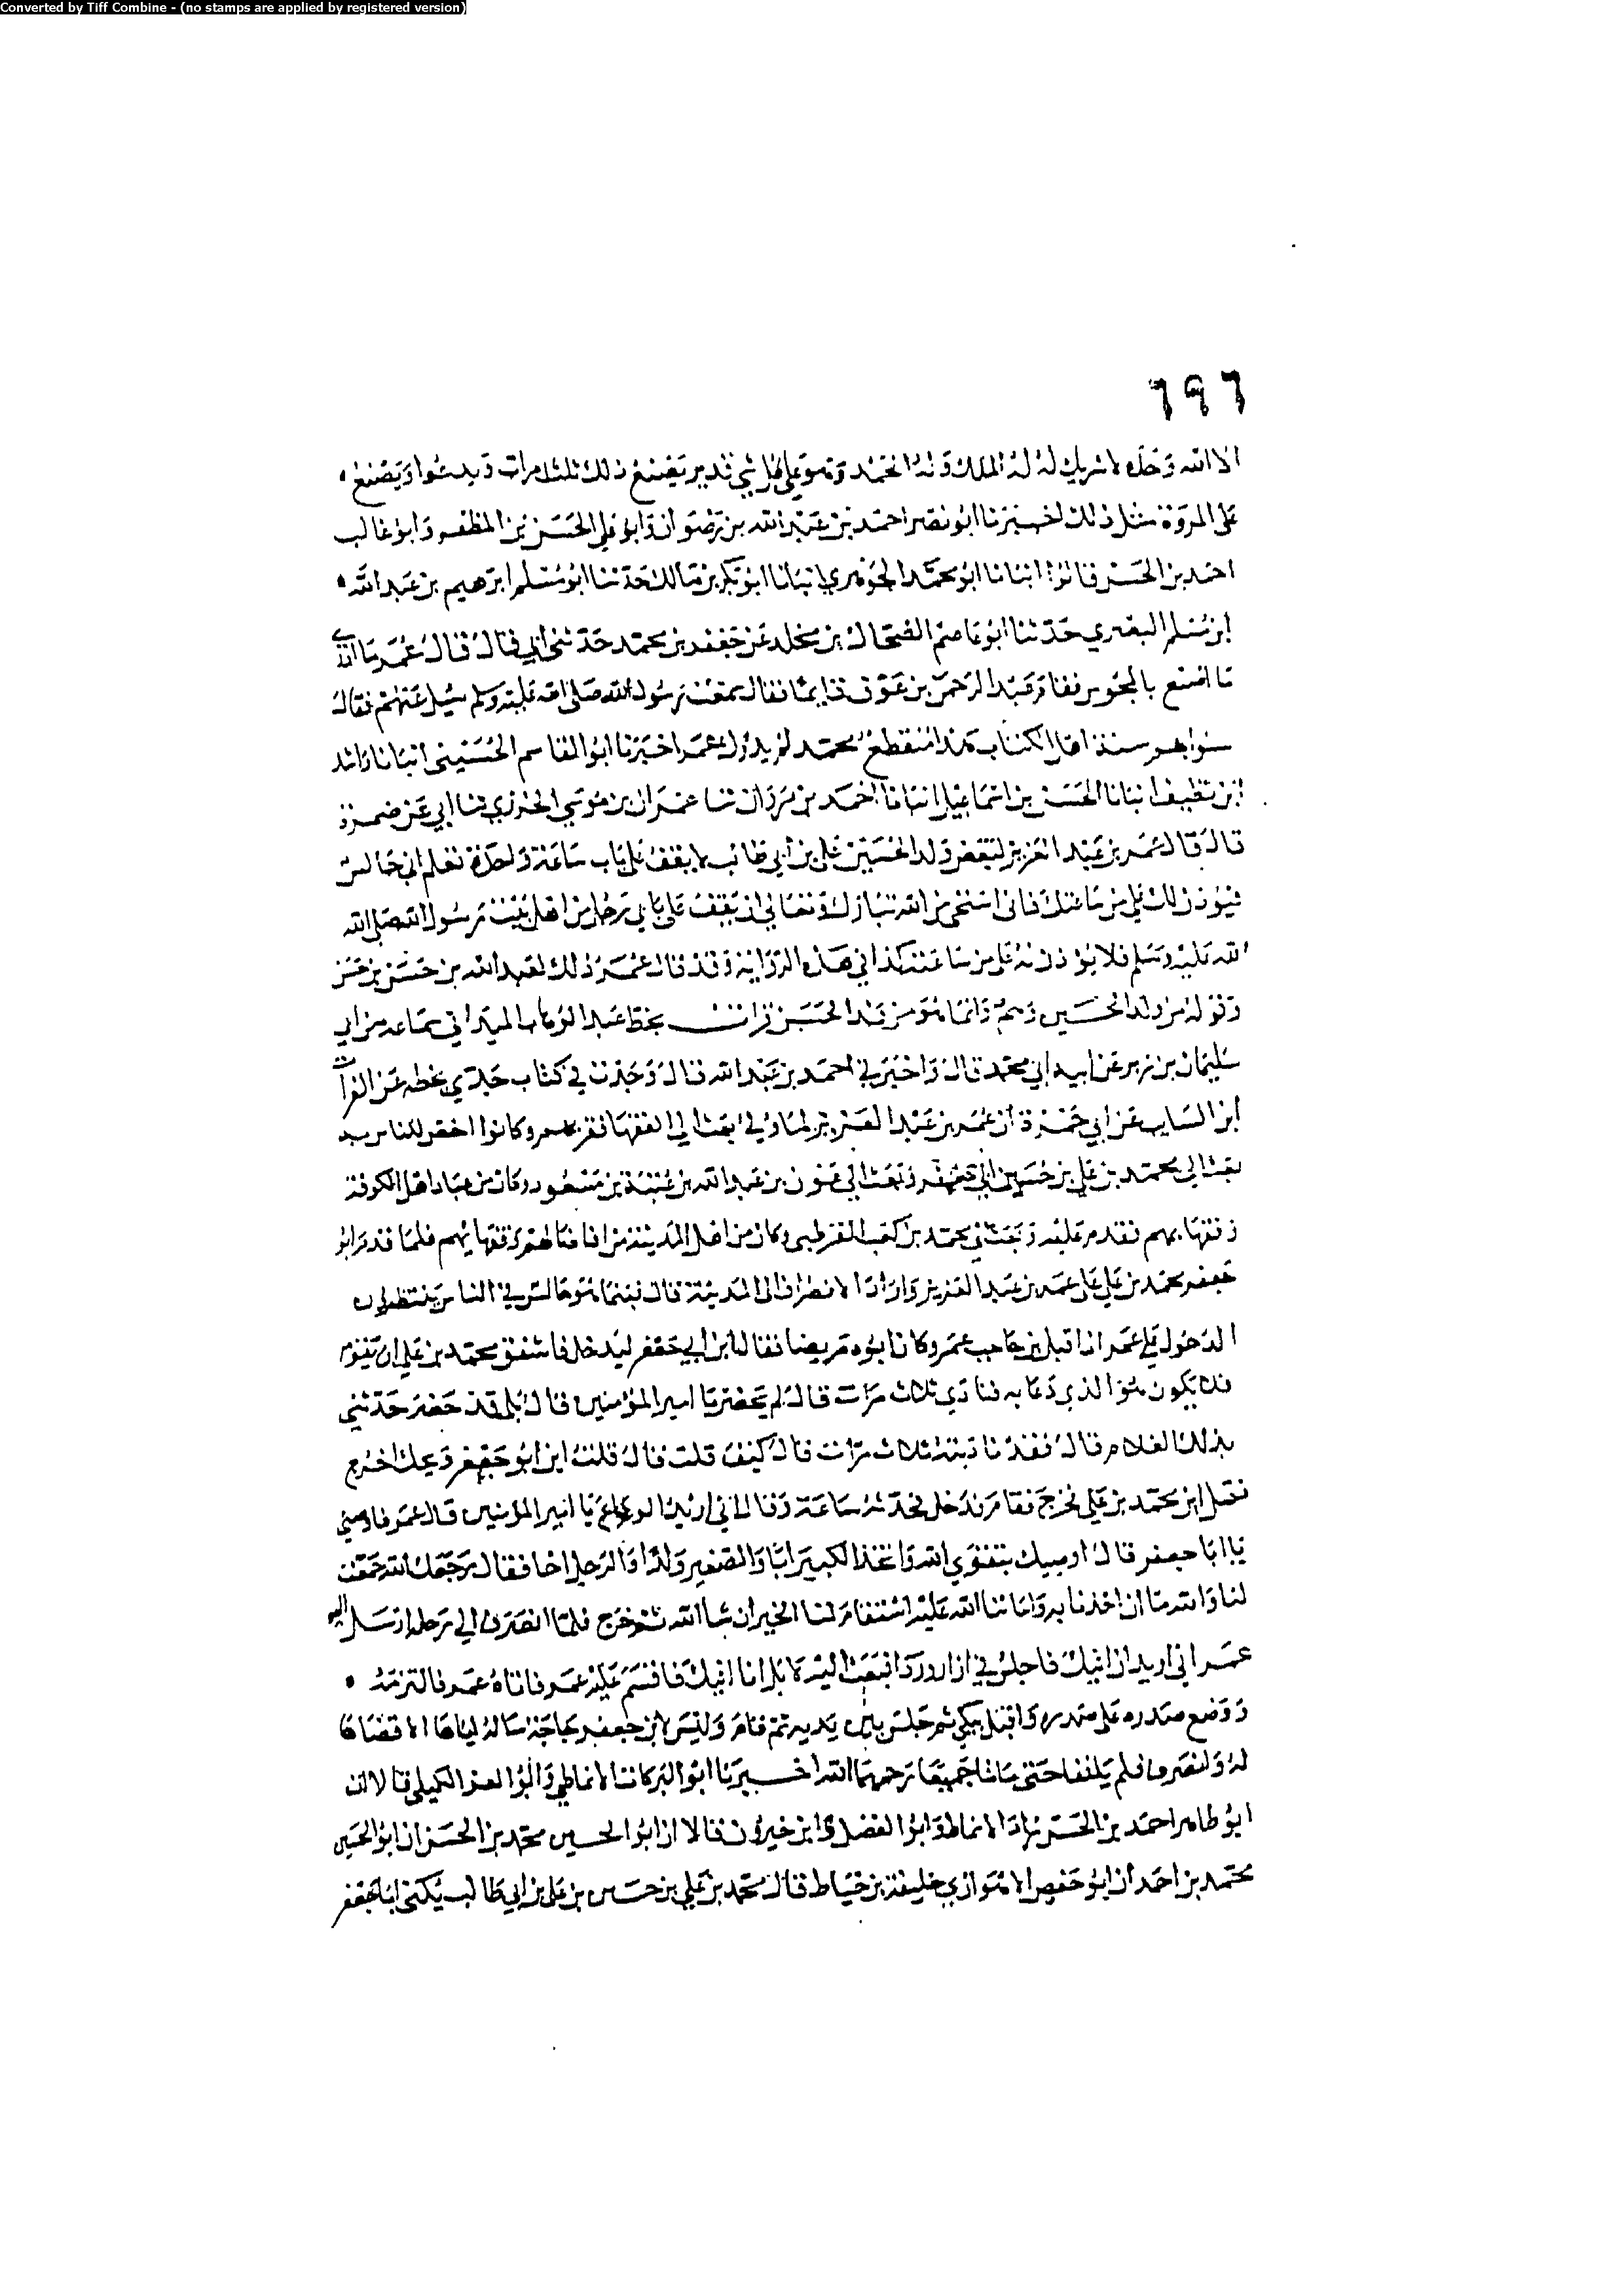 Converted by Tiff Combine - (no stamps are applied by registered version)
٦٩٦
الا الله وحده لا شريك له له الملك وله الحمد وهو على كل شي قدير يصنع ذلك ثلث مرات ويدعوا ويصنع
على المروة مثل ذلك اخبرنا ابو نصر احمد بن عبد الله بن رضوان وابو علي الحسن بن المظفر وابو غالب
احمد بن الحسن قالوا انبانا ابو محمد الجوهري انبانا ابو بكر بن مالك حدثنا ابو مسلم ابرهيم بن عبد الله
ابن مسلم البصري حدثنا ابو عاصم الضحاك بن مخلد عن جعفر بن محمد حدثني ابي قال قال عمر ما ادري
ما اصنع بالمجوس فقام عبد الرحمن بن عوف قايما فقال سمعت رسول الله صلى الله عليه وسلم سيل عنهم فقال
سنوا بهم سنة اهل الكتاب هذا منقطع محمد لم يدرك عمر اخبرنا ابو القاسم الحسيني انبانا رشا
ابن نظيف انبانا الحسن بن اسماعيل انبانا احمد بن مروان ثنا عمران بن موسي الجزري ثنا ابي عن ضمرة
قال قال عمر بن عبد العزيز لبعض ولد الحسين علي بن ابي طالب لا يقف على باب ساعة واحدة تعلم اني جالس
فيوذن لك علي من ساعتك فاني استحى من الله تبارك وتعالي ان يقف على بابي رجل من اهل بيت رسول الله صلى الله
الله عليه وسلم فلا يوذن له علي من ساعته كذا في هذه الرواية وقد قال عمر ذلك لعبد الله بن حسن بن حسن
وقوله من ولد الحسين وهم وانما هو من ولد الحسن قرات بخط عبد الوهاب الميداني سماعه من ابي
سليمان بن زبر عن ابيه ابي محمد قال واخبرني احمد بن عبد الله قال وجدت في كتاب جدي بخطه عن الفرات
ابن السايب عن ابي حمزة ان عمر بن عبد العزيز لما ولي بعث الي الفقها فقربهم وكانوا اخص الناس به
بعث الي محمد بن علي بن حسين ابي جعفر وبعث الي عون بن عبد الله بن عتبة بن مسعود وكان من عباد اهل الكوفة
وفقهايهم فقدم عليه وبعث الى محمد بن كعب القرظي وكان من اهل المدينة من افاضلهم وفقهايهم فلما قدم ابو
جعفر محمد بن علي على عمر بن عبد العزيز واراد الانصراف الى المدينة قال فبينما هو جالس في الناس ينتظرون
الدخول علي عمر اذ اقبل ابن حاجب عمر وكان ابوه مريضا فقال اين ابي جعفر ليدخل فاشفق محمد بن علي ان يقوم
فلا يكون هو الذي دعا به فنادي ثلاث مرات قال لم يحضر يا امير المؤمنين قال بلى قد حضر حدثني
بذلك الغلام قال فقد ناديته ثلاث مرات قال كيف قلت قال قلت اين ابو جعفر ويحك اخرج
فقل اين محمد بن علي فخرج فقام فدخل فحدثه ساعة وقال اني اريد الوداع يا امير المؤمنين قال عمر فاوصني
يا ابا جعفر قال اوصيك بتقوي الله واتخذ الكبير ابا والصغير ولدا والرجل اخا فقال رحمك الله جمعت
لنا والله ما ان اخذنا به واماتنا الله عليه استقام لنا الخير ان شا الله ثم خرج فلما انصرف الي رحله ارسل اليه
عمر اني اريد ان اتيك فاجلس في ازار وردا فبعث اليه لا بل انا اتيك فاقسم عليه عمر فاتاه عمر فالتزمه
ووضع صدره على صدره واقبل يبكي ثم جلس بين يديه ثم قام وليس لابي جعفر حاجة ساله اياها الا قضاها
له وانصرف فلم يلتقيا حتى ماتا جميعا رحمهما الله اخبرنا ابو البركات الانماطي وابو العز الكيلي قالا انا
ابو طاهر احمد بن الحسن زاد الانماطي وابو الفضل بن خيرون قالا انا ابو الحسين محمد بن الحسن انا ابو الحسين
محمد بن احمد انا ابو حفص الاهوازي خليفة بن خياط قال محمد بن علي بن حسين بن علي بن ابي طالب يكنى ابا جعفر